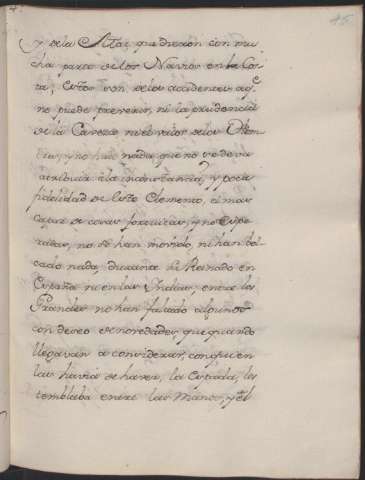 45
y de la Altas que dieron con mu
cha parte de los Navios en la Cos
ta; Estos son de los accidentes aqe.
no puede prevenir, ni la prudencia
de la Caveza, ni el valor de los Om
bres, y no hay nada que no se deva
atribuir á la inconstancia, y poca
fidelidad de este Elemento, el mas
capaz de cosas fortuitas, y no Espe
radas, no se han movido, ni han bol
cado nada, durante su Reinado en
España ni en las Indias; entre los
Grandes no han faltado algunos
con deseo de novedades, que quando
llegavan a considerar, con quien
las havia de haver, la Espada, les
temblaba entre las Manos, y el